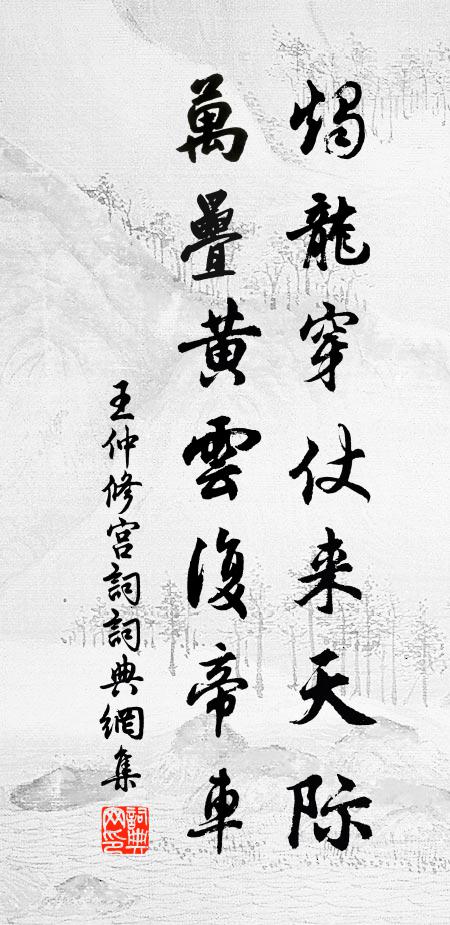 燭龍穿仗来天际
萬疊黄雲復帝車
王仲修宫詞詞典網集
詞典網印